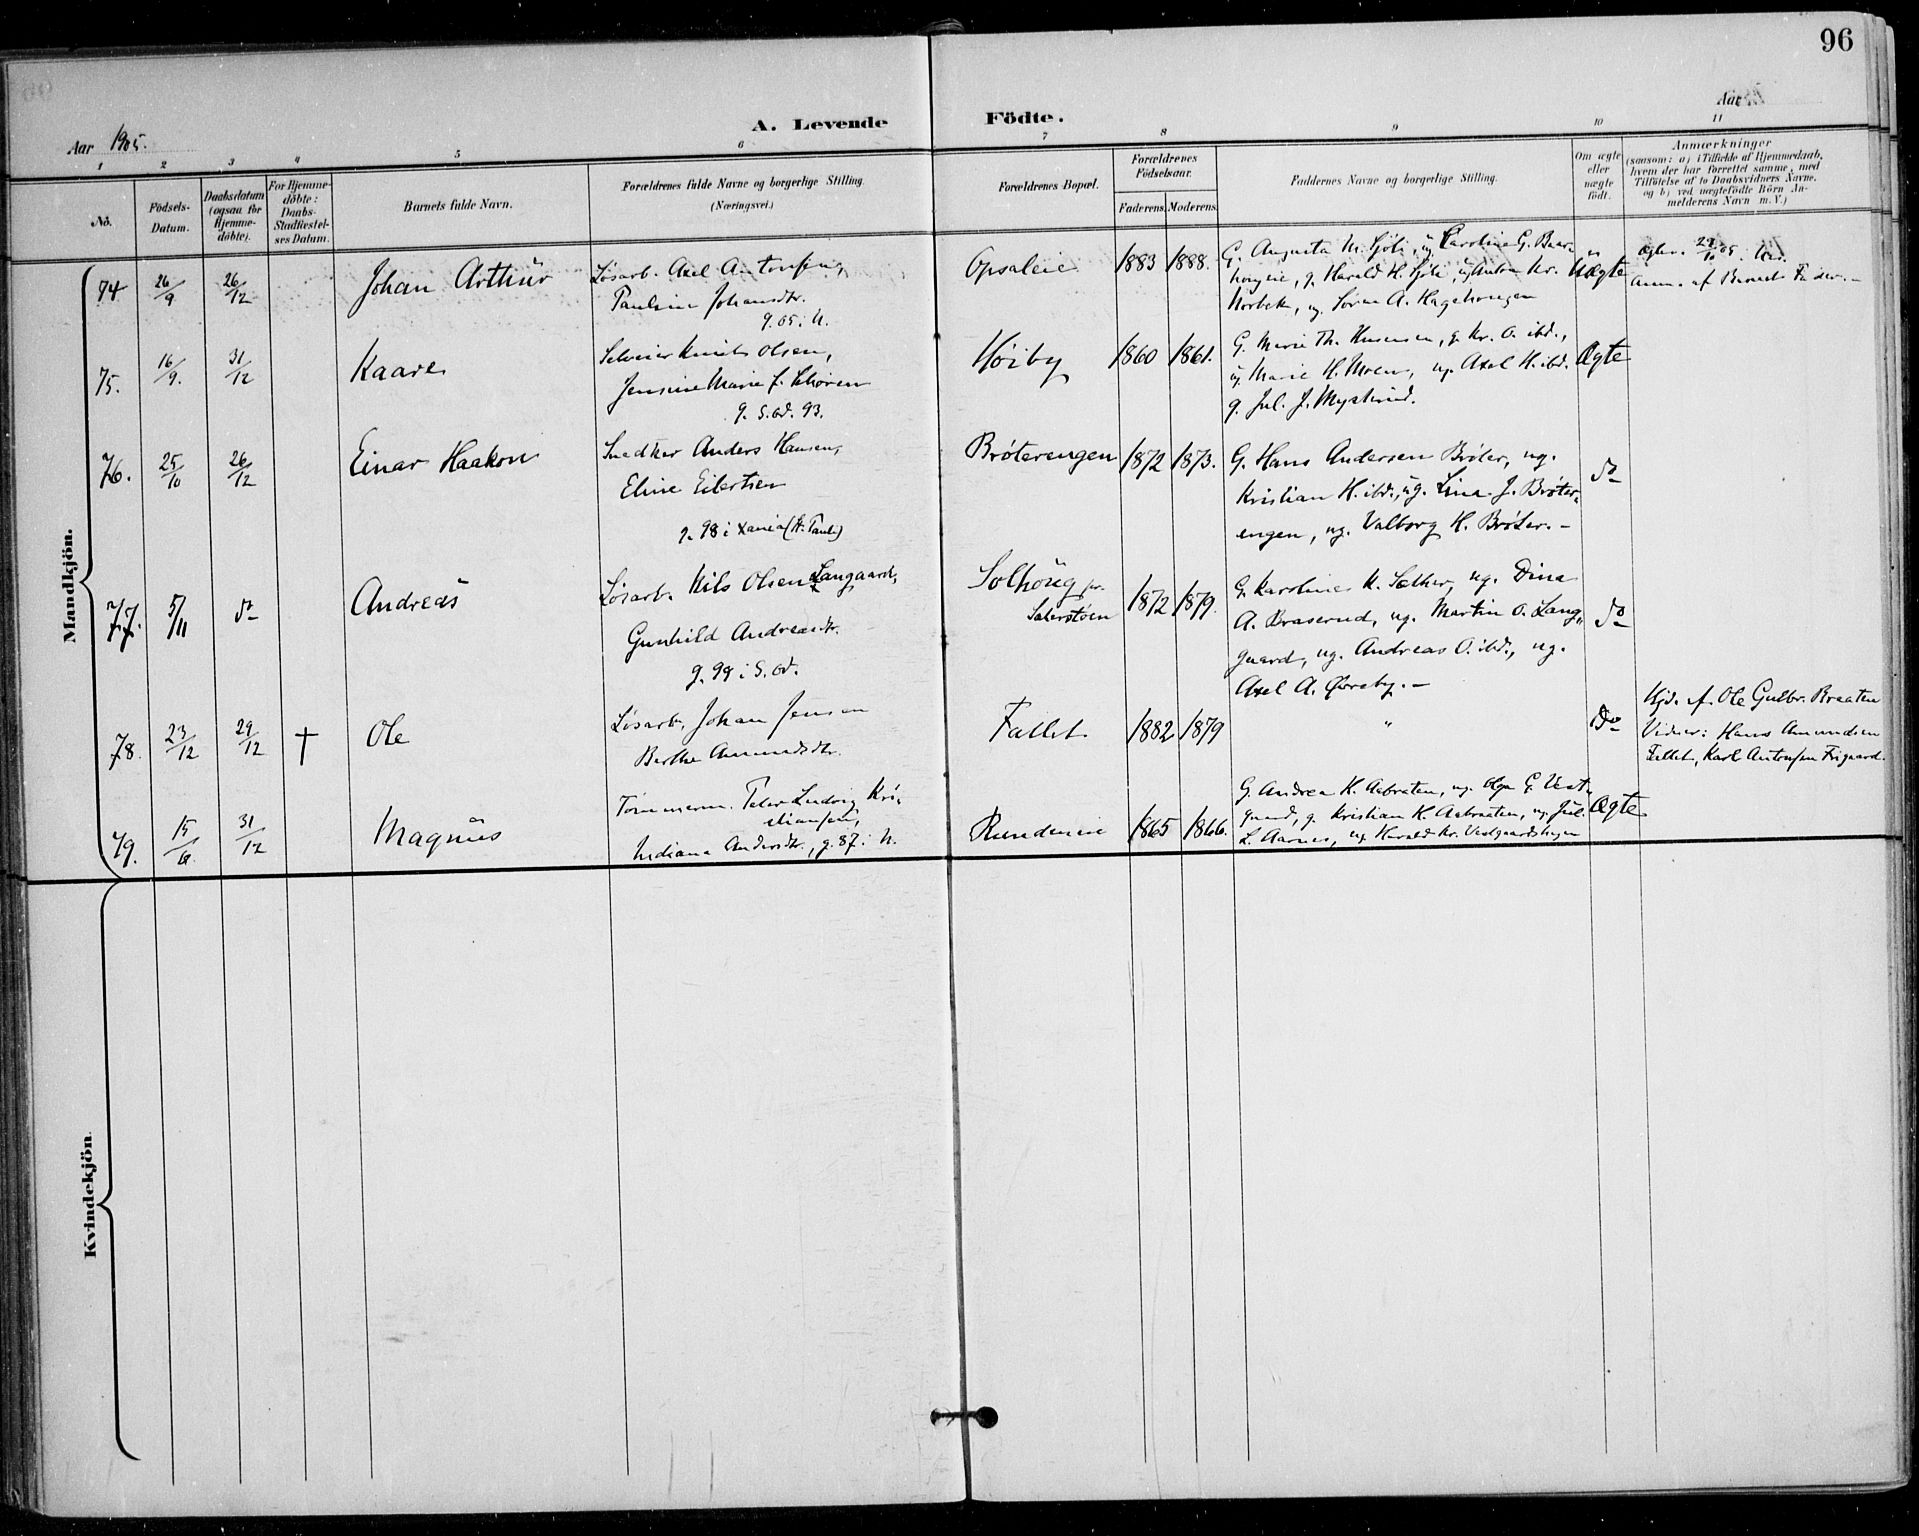 96
Aar 1905.
A. Levende Födte.
Aar
1 2 3 4 5 6 7 8 9 10 11
No.
Födsels-Datum.
Daabsdatum (ogsaa for Hjemme-döbte).
For Hjemme-döbte: Daabs-Stadfæstel-ses Datum.
Barnets fulde Navn.
Forældrenes fulde Navne og borgerlige Stilling.
(Næringsvei.)
Forældrenes Bopæl.
Forældrenes Födselsaar.
Faderens. Moderens.
Faddernes Navne og borgerlige Stilling.
Om ægte eller uægte födt.
Anmærkninger
(saasom: a) i Tilfælde af Hjemmedaab,
hvem der har forrettet samme, med
Tilföielse af to Daabsvidners Navne,
og b) ved uægtefödte Börn An-
melderens Navn m. V.)
Mandkjön.
74 26/9 26/12 Johan Arthur Løsarb. Axel Antonsen,
Pauline Johansdtr.
g. 05 i U.
Opsaleie 1883 1888.
G. Augusta M. Sjøli, ug. Caroline G. Baar-
haugeie, g. Harald H. Sjøli, ug. Anton Kr.
Norbek, ug. Søren A. Hagehaugen
Uægte
75. 16/9. 31/12 Kaare Knut Olsen,
Jensine Marie f. Schøren
g. S. Od. 93.
Høiby 1860 1861.
G. Marie Th. Hansen, g. Kr. O. ibd.,
ug. Marie H. Moen, ug. Axel H. ibd.
g. Jul. J. Mystrud.
Ægte
76. 25/10 26/12 Einar Haakon Snedker Anders Hansen,
Eline Eilertsen
g. 98 i Xania (St. Pauls)
Brøterengen 1872 1873.
G. Hans Andersen Brøter, ug.
Kristian H. ibd., ug. Lina J. Brøter-
engen, ug. Valborg H. Brøter. —
do
77. 5/11 do Andreas Løsarb. Nils Olsen Langaard,
Gunhild Andreasdtr.
g. 99 i S. Od.
Solhöug pr.
Sæterstøen 1872 1879.
G. Karoline K. Sæther, ug. Dina
A. Braserud, ug. Martin O. Lang-
gaard, ug. Andreas O. ibd., ug.
Axel A. Øvreby. —
do
78. 23/12 29/12 † Ole Løsarb. Johan Jensen
Berthe Amundsdtr.
Fallet. 1882 1879 " Do
Hjd. af Ole Gulbr. Braaten
Vidner: Hans Amundsen
Fallet, Karl Antonsen Frigaard.
79. 15/ 31/12 Magnus Tømmerm. Peter Ludvig Kri-
stiansen,
Indiana Andersdtr., g. 87 i U.
Rundereie 1865 1866.
G. Andrea K. Aabraten, ug. Olga G. Vest-
gaard, g. Kristian K. Aabraaten, ug. Jul.
L. Aarnes, ug. Harald Kr. Vestgaardshagen
Ægte
Kvindekjön.